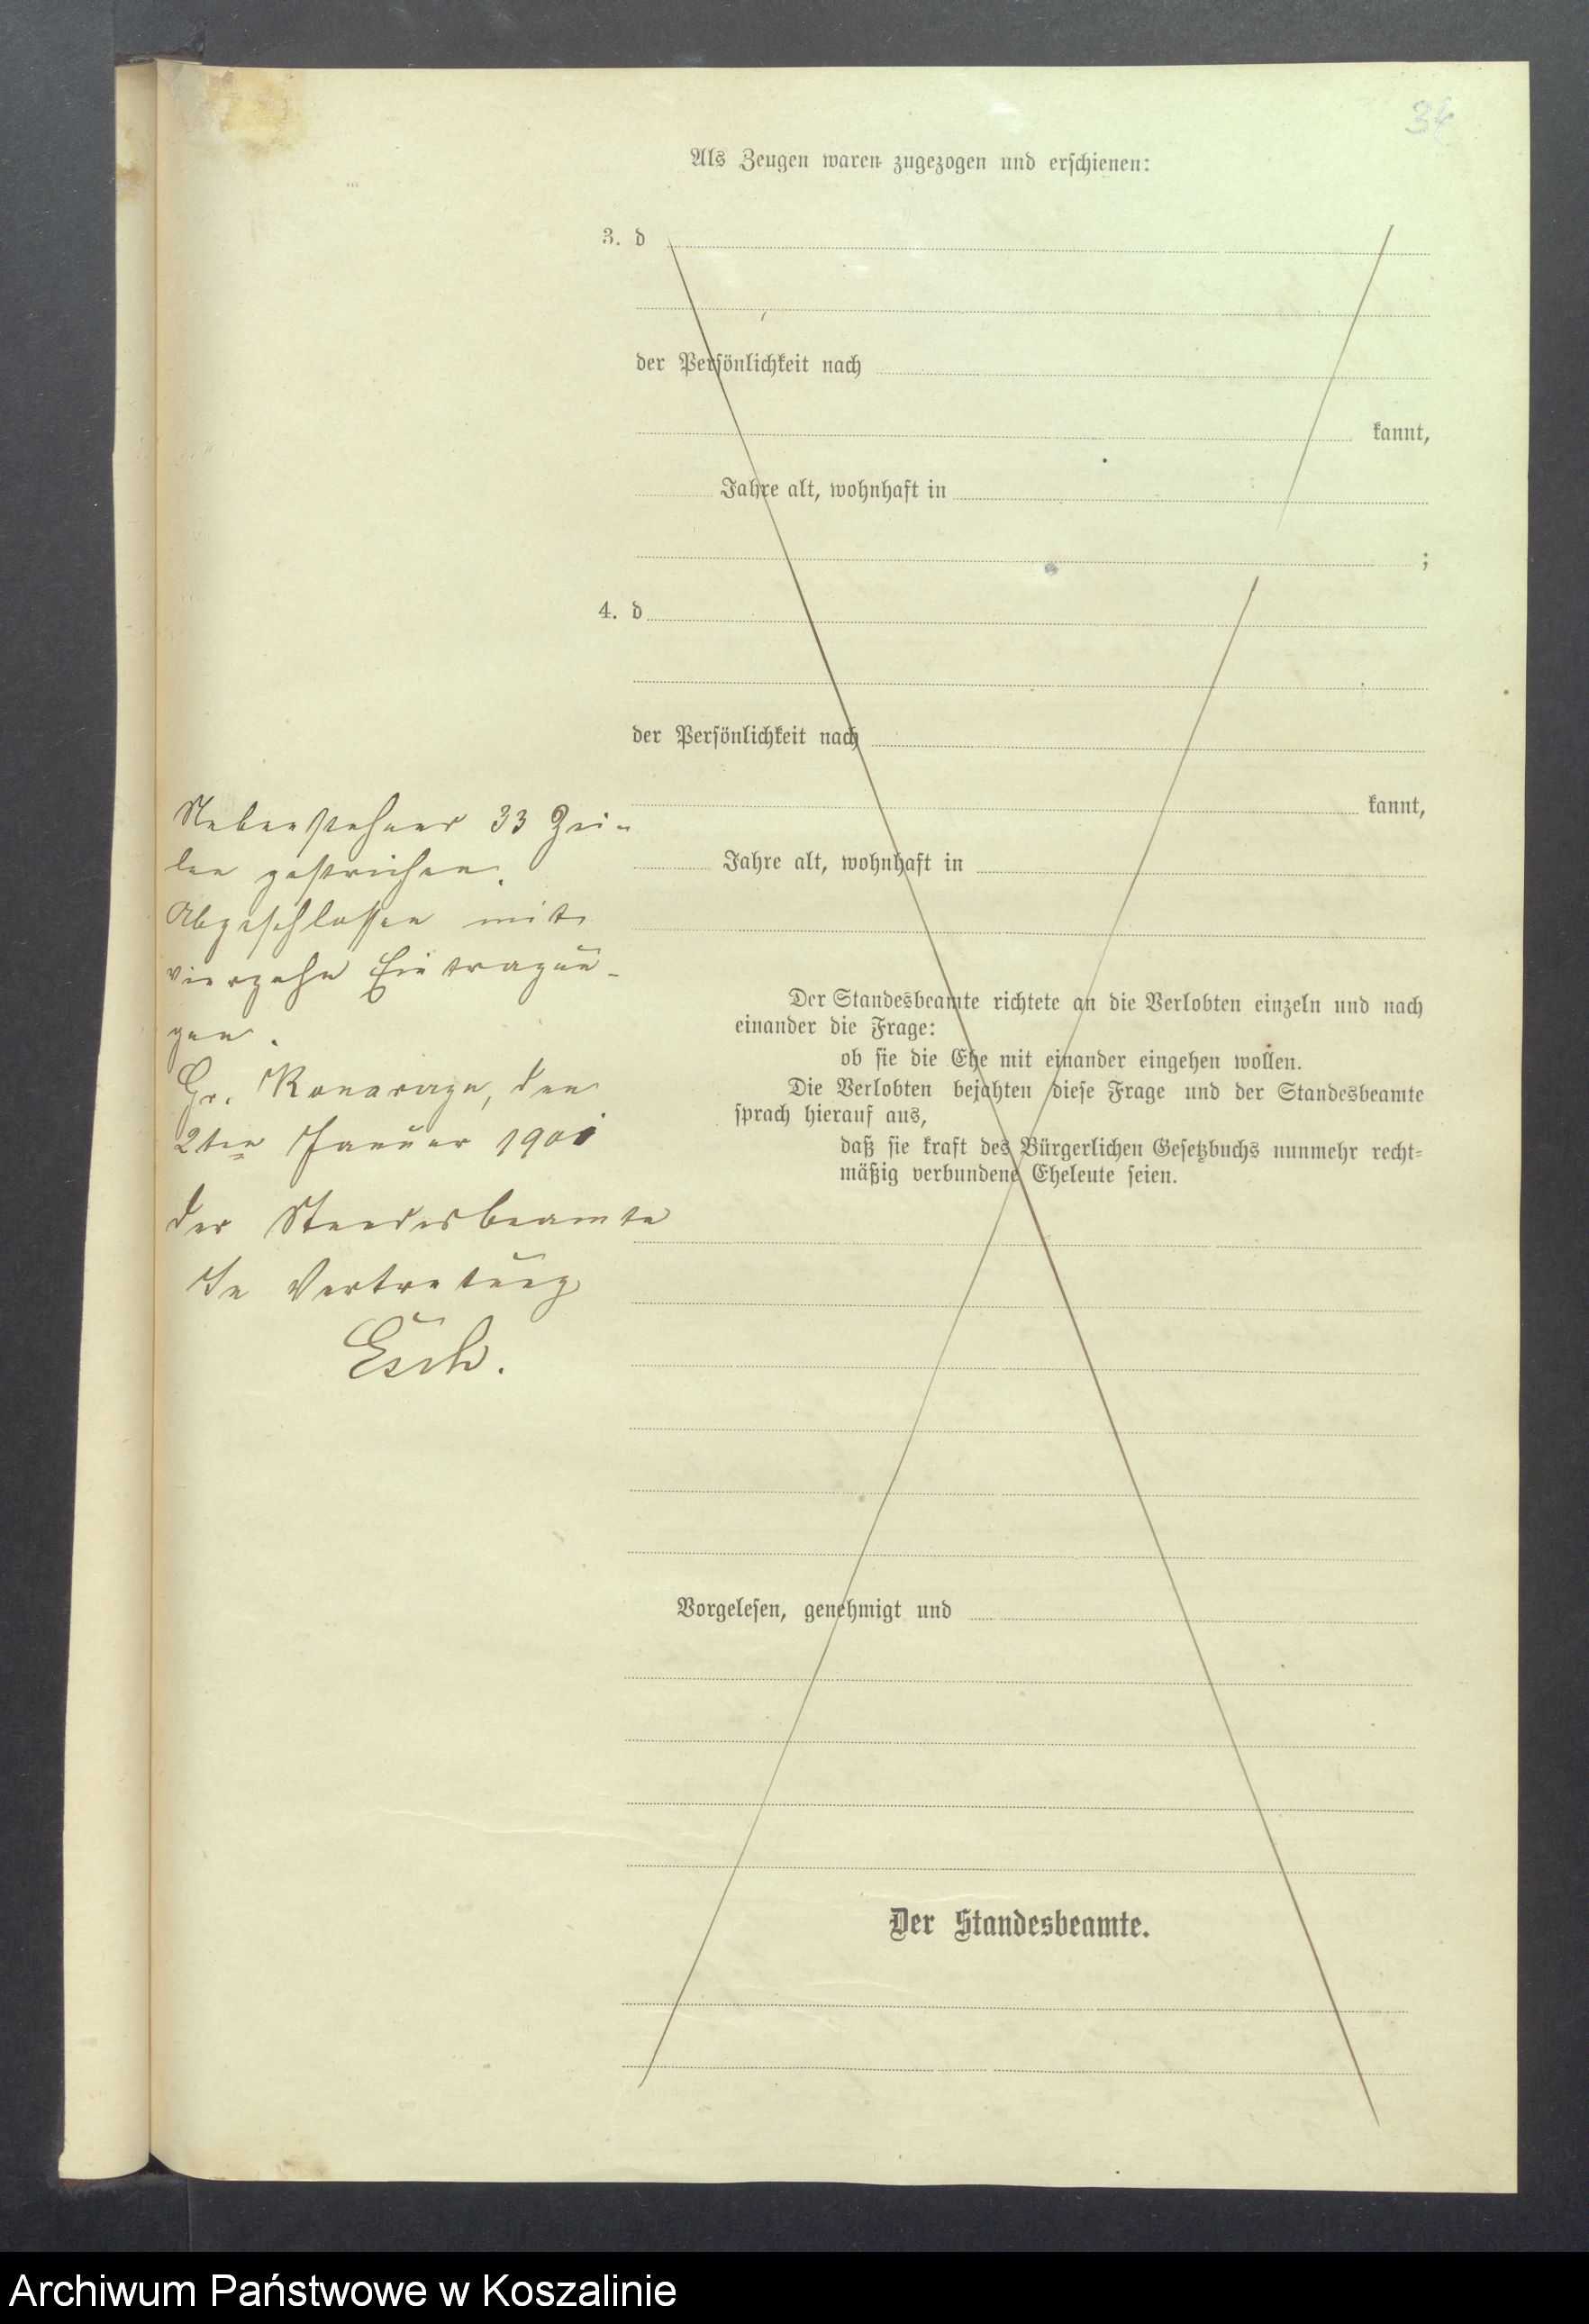 34
Als Zeugen waren zugezogen und erschienen:
3. d
der Persönlichkeit nach
kannt,
Jahre alt, wohnhaft in
;
4. d
der Persönlichkeit nach
kannt,
Jahre alt, wohnhaft in
Der Standesbeamte richtete an die Verlobten einzeln und nach
einander die Frage:
ob sie die Ehe mit einander eingehen wollen.
Die Verlobten bejahten diese Frage und der Standesbeamte
sprach hierauf aus,
daß sie kraft des Bürgerlichen Gesetzbuchs nunmehr recht=
mäßig verbundene Eheleute seien.
Vorgelesen, genehmigt und
Der Standesbeamte.
Nebenstehend 33 Zei-
len gestrichen.
Abgeschlossen mit
vierzehn Eintragun-
gen.
Gr. den
2ten Januar 1901
der Standesbeamte
In Vertretung
Esch.
Archiwum Państwowe w Koszalinie